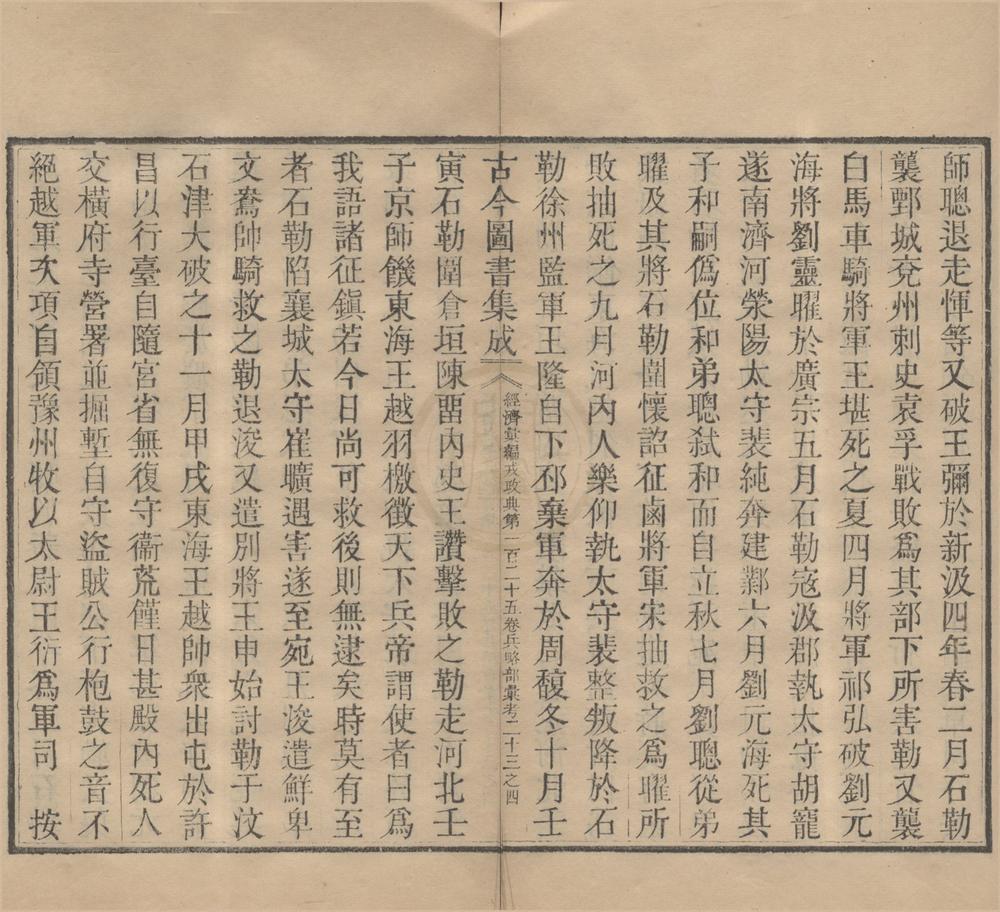 師聰退走惲等又破王彌於新汲四年春二月石勒
襲鄄城兗州刺史袁孚戰敗爲其部下所害勒又襲
白馬車騎將軍王堪死之夏四月將軍祁弘破劉元
海將劉靈曜於廣宗五月石勒寇汲郡執太守胡寵
遂南濟河滎陽太守裴純奔建鄴六月劉元海死其
子和嗣僞位和弟聰弒和而自立秋七月劉聰從弟
曜及其將石勒圍懷詔征鹵將軍宋抽救之爲曜所
敗抽死之九月河內人樂仰執太守裴整叛降於石
勒徐州監軍王隆自下邳棄軍奔於周馥冬十月壬
古今圖書集成
經濟彙編戎政典第一百二十五卷兵略部彙考二十三之四
寅石勒圍倉垣陳畱內史王讚擊敗之勒走河北壬
子京師饑東海王越羽檄徵天下兵帝謂使者曰爲
我語諸征鎭若今日尚可救後則無逮矣時莫有至
者石勒陷襄城太守崔曠遇害遂至宛王浚遣鮮卑
文鴦帥騎救之勒退浚又遣別將王申始討勒于汶
石津大破之十一月甲戌東海王越帥衆出屯於許
昌以行臺自隨宮省無復守衞荒饉日甚殿內死人
交橫府寺營署並掘塹自守盜賊公行枹鼓之音不
絕越軍次項自領豫州牧以太尉王衍爲軍司 按